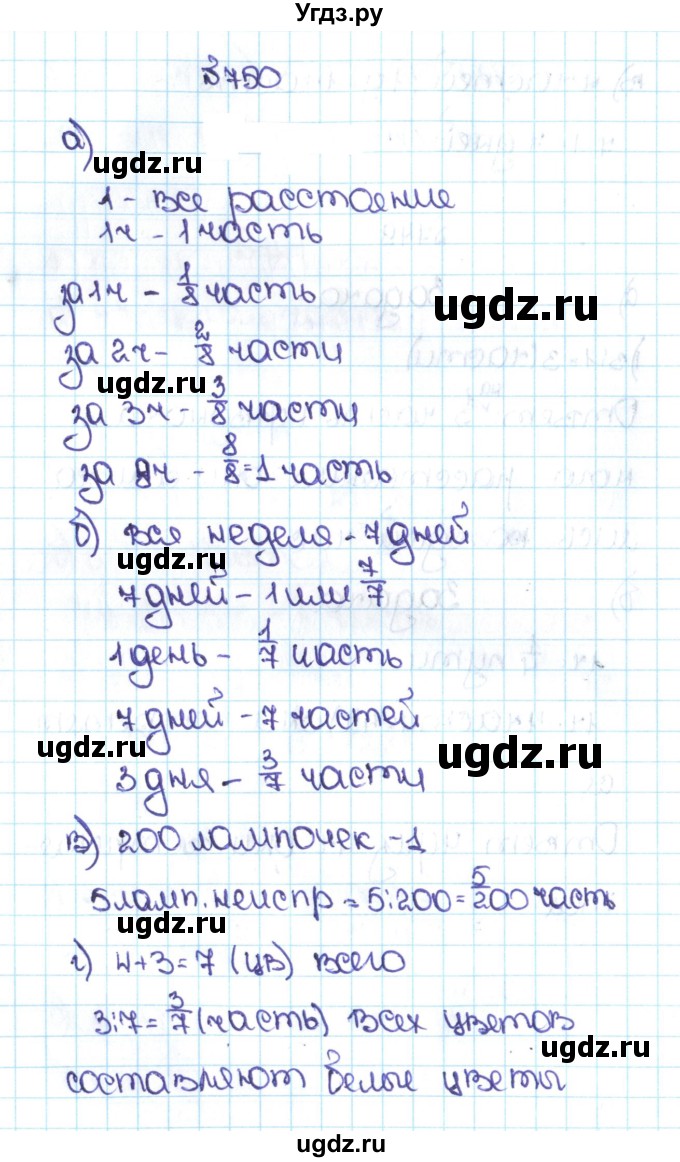 Угдз.ру
№750
а)
ugdz.ru
1 - все расстояние
1ч - 1 часть
за 1ч - 1/8 часть
ugdz.ru
за 2ч - 2/8 части
ugdz.ru
за 3ч - 3/8 части
за 8ч - 8/8 = 1 часть
б) вся неделя - 7 дней
ugdz.ru
7 дней - 1 или 7/7
1 день - 1/7 часть
7 дней - 7 частей
ugdz.ru
ugdz.ru
3 дня - 3/7 части
в) 200 лампочек - 1
5 ламп. неиспр = 5:200 = 5/200 часть
ugdz.ru
г) 4+3=7 (цв) всего
3:7 = 3/7 (часть) всех цветов
ugdz.ru
составляют белые цветы
ugdz.ru